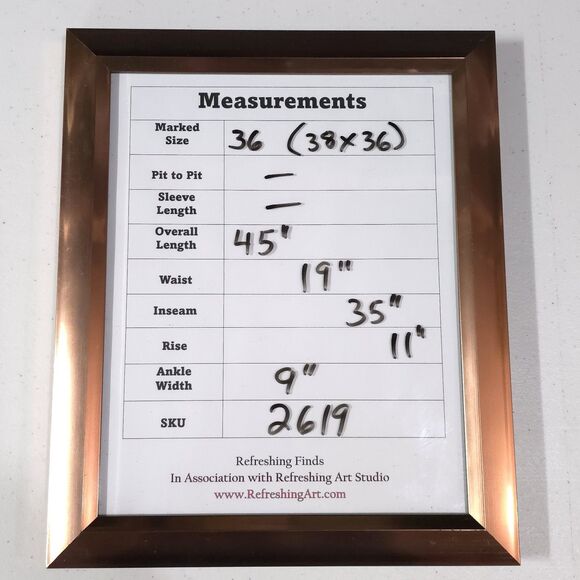 Measurements
Marked Size 36 (38x36)
Pit to Pit —
Sleeve Length —
Overall Length 45"
Waist 19"
Inseam 35"
Rise 11"
Ankle Width 9"
SKU 2619
Refreshing Finds
In Association with Refreshing Art Studio
www.RefreshingArt.com